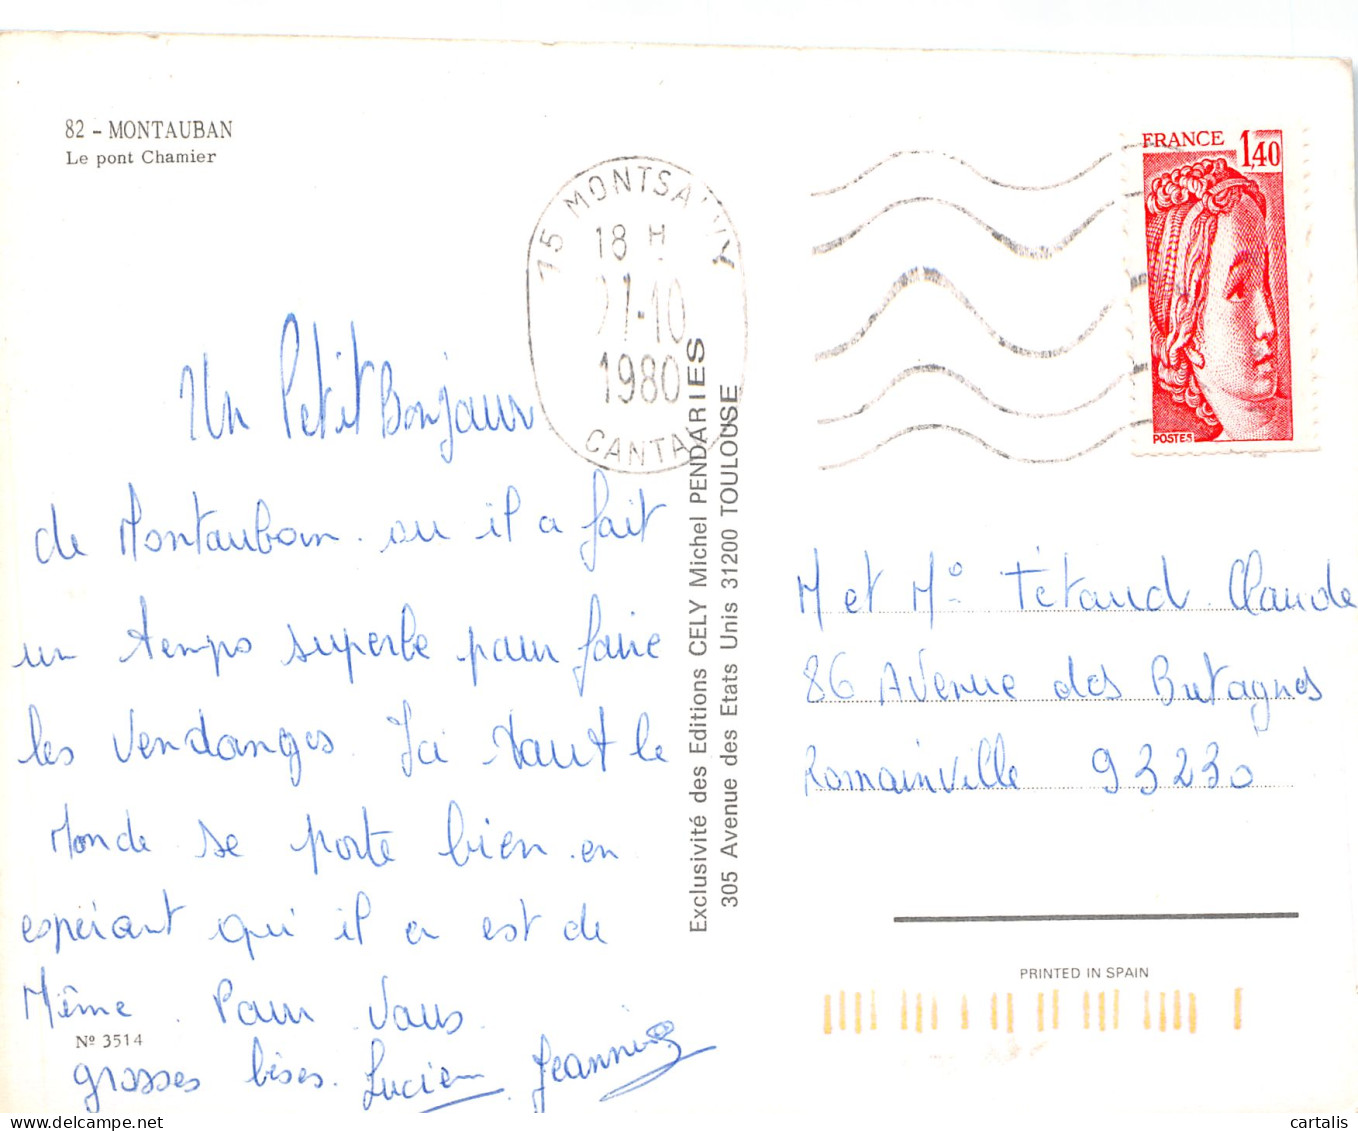 82 - MONTAUBAN
Le pont Chamier
15 MONTSALVY
18 H
27-10
1980
CANTAL
FRANCE 1,40
POSTES
Un Petit Bonjour
de Montauban. ou il a fait
un temps superbe pour faire
les vendanges. Ici tout le
Monde se porte bien. en
espérant qui il en est de
Même. Pour vous.
Nº 3514
grosses bises. Lucien. Jeannine
Exclusivité des Editions CELY Michel PENDARIES
305 Avenue des Etats Unis 31200 TOULOUSE
M et Me Tétaud. Claude
86 Avenue des Bretagnes
Romainville 93230
PRINTED IN SPAIN
© cartalis